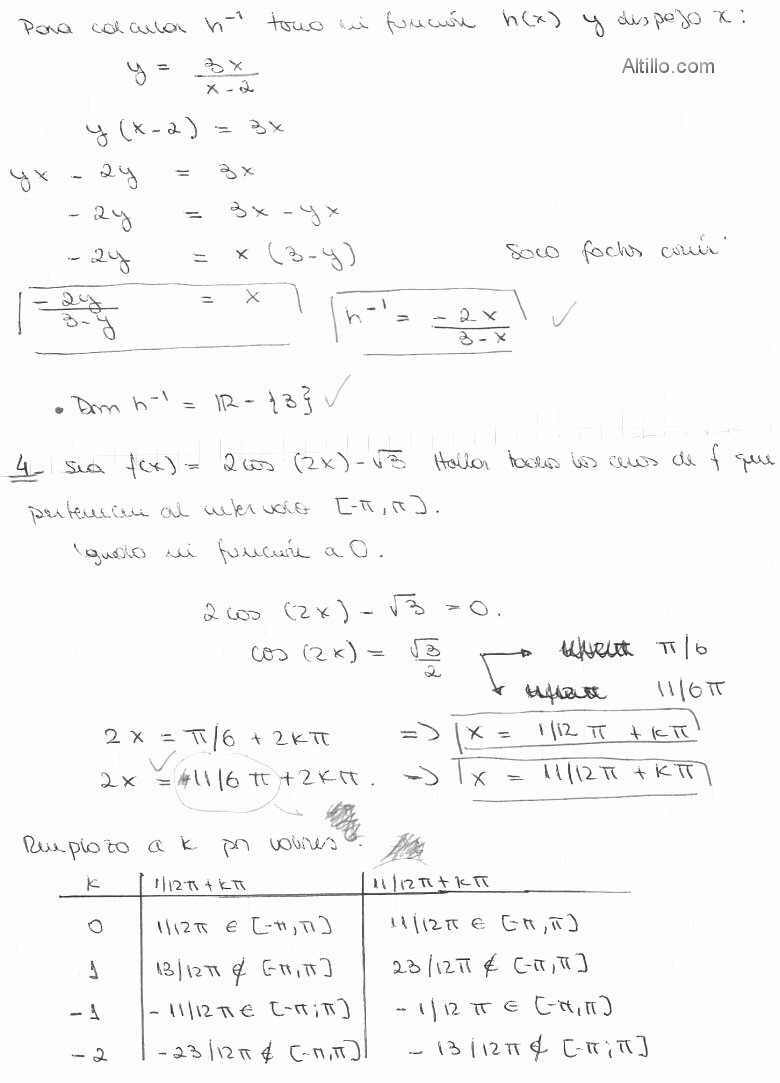 Para calcular h⁻¹ tomo mi función h(x) y despejo x:
Altillo.com
y = 3x / x-2
y (x-2) = 3x
yx - 2y = 3x
- 2y = 3x - yx
- 2y = x (3-y)
Saco factor común
- 2y / 3-y = x
h⁻¹ = - 2x / 3-x ✓
• Dom h⁻¹ = IR - {3} ✓
4 - Sea f(x) = 2cos (2x) - √3 Hallar todos los ceros de f que
pertenecen al intervalo [-π, π].
Igualo mi función a 0.
2cos (2x) - √3 = 0.
cos (2x) = √3 / 2
π/6
11/6π
2x = π/6 + 2kπ => x = 1/12 π + kπ
2x = 11/6 π + 2kπ. => x = 11/12π + kπ
Remplazo a k por valores:
k | 1/12π + kπ | 11/12π + kπ
0 | 1/12π ∈ [-π, π] | 11/12π ∈ [-π, π]
1 | 13/12π ∉ [-π, π] | 23/12π ∉ [-π, π]
-1 | - 11/12π ∈ [-π; π] | - 1/12 π ∈ [-π, π]
-2 | - 23/12π ∉ [-π, π] | - 13/12π ∉ [-π; π]